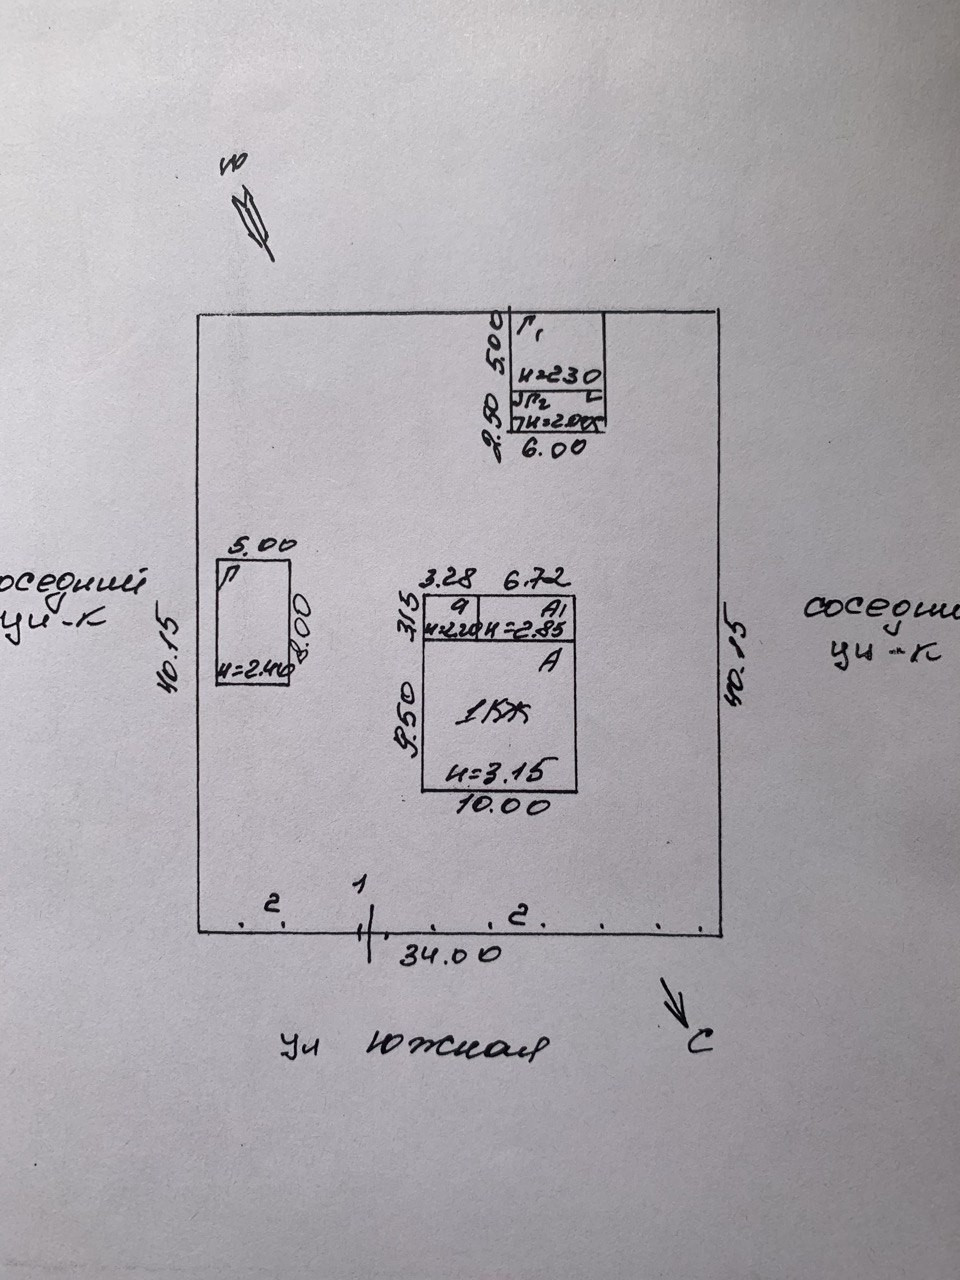 Ю
5.00
Г₁
н=2.30
2.50
Г₂
6.00
5.00
Г
8.00
н=2.40
3.28 6.72
3.15
а А₁
н=2.20 н=2.85
А
1КЖ
9.50
н=3.15
10.00
соседний
уч-к
40.15
40.15
соседни
уч-к
2 1 2
34.00
ул Южная
С